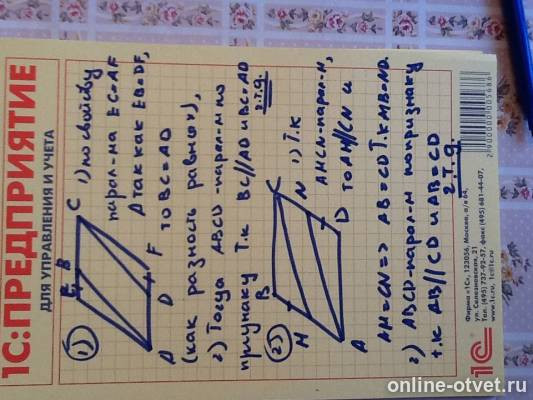 1С:ПРЕДПРИЯТИЕ
ДЛЯ УПРАВЛЕНИЯ И УЧЕТА
1) E B C
A D F
1) по свойству
парал-ма EC=AF
А так как EB=DF,
то BC=AD
(как разность равных),
2) Тогда ABCD -парал-м по
признаку т.к BC//AD и BC=AD
ч.т.д.
2) B C
M N
A D
1) Т.к
AMCN-парал-м,
то AM//CN и
AM=CN => AB=CD т.к MB=ND.
2) ABCD-парал-м по признаку
т.к AB//CD и AB=CD
ч.т.д.
1С
Фирма «1С», 123056, Москва, а/я 64,
ул. Селезневская, 21
Тел. (495) 737-92-57, факс (495) 681-44-07,
www.1c.ru, 1c@1c.ru
online-otvet.ru